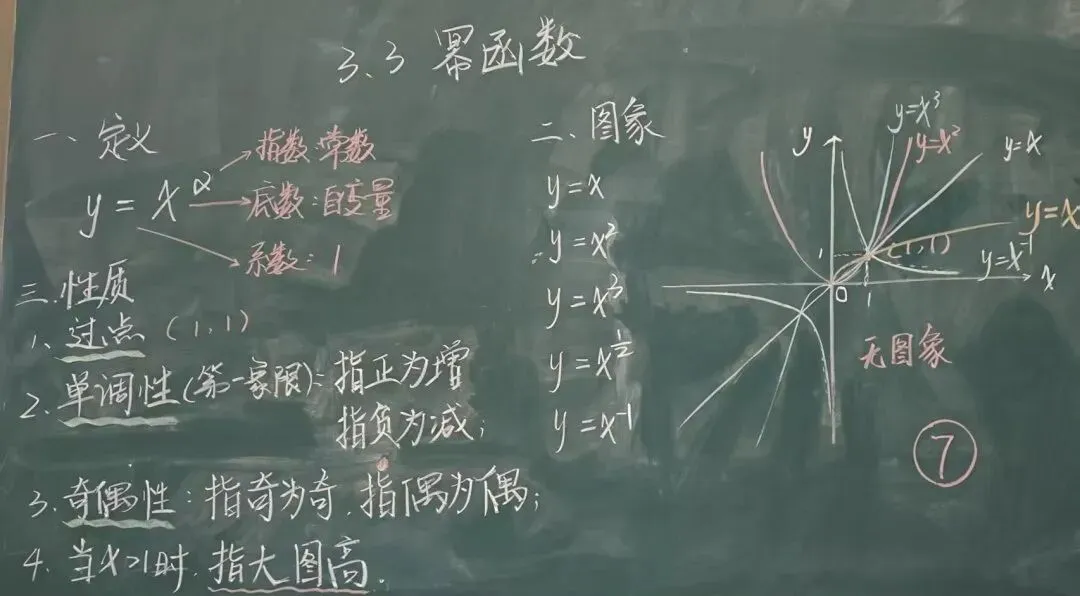 3.3 幂函数
一、定义
y = x^α
指数:常数
底数:自变量
系数:1
三、性质
1、过点 (1,1)
2、单调性(第一象限):指正为增
指负为减;
3、奇偶性:指奇为奇、指偶为偶;
4、当x>1时、指大图高.
二、图象
y = x
y = x²
y = x³
y = x^½
y = x⁻¹
y
y=x³
y=x²
y=x
y=x
1
(1,1)
y=x⁻¹
0
1
x
无图象
⑦